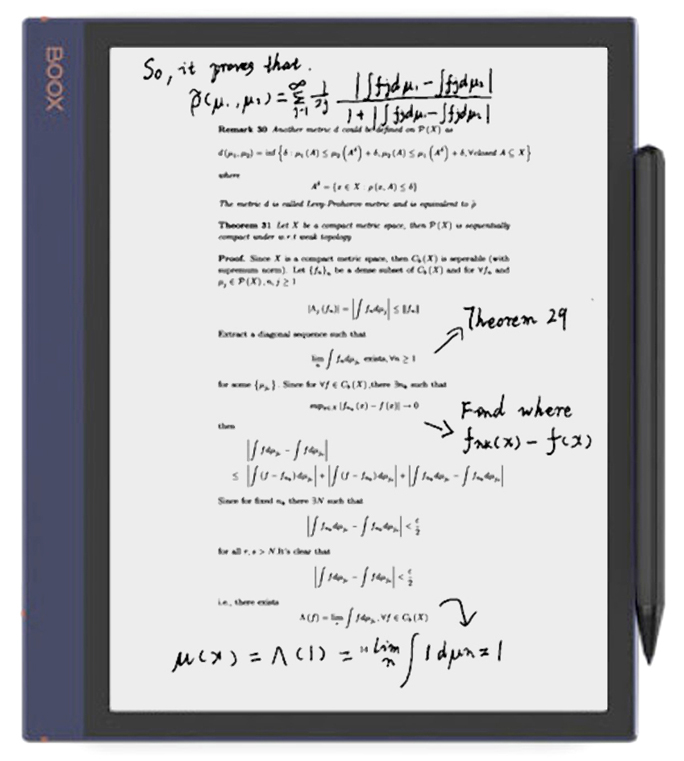 BOOX
So, it proves that.
ρ̃(μ₁, μ₂) = ∑_{j=1}^{∞} 1/2j |∫fjdμ₁ − ∫fjdμ₂| / 1 + |∫fjdμ₁ − ∫fjdμ₂|
Remark 30 Another metric d could be defined on P(X) as
d(μ₁, μ₂) = inf {δ : μ₁(A) ≤ μ₂(A^δ) + δ, μ₂(A) ≤ μ₁(A^δ) + δ, ∀closed A ⊆ X}
where
A^δ = {x ∈ X : ρ(x, A) ≤ δ}
The metric d is called Levy-Prohorov metric and is equivalent to ρ̃
Theorem 31 Let X be a compact metric space, then P(X) is sequentially
compact under w.r.t weak topology
Proof. Since X is a compact metric space, then C_b(X) is seperable (with
supremum norm). Let {fₙ}ₙ be a dense subset of C_b(X) and for ∀fₙ and
μⱼ ∈ P(X), n, j ≥ 1
|Λⱼ(fₙ)| = |∫ fₙdμⱼ| ≤ ‖fₙ‖
Theorem 29
Extract a diagonal sequence such that
lim ∫ fₙdμ exists, ∀n ≥ 1
for some {μ}. Since for ∀f ∈ C_b(X), there ∃nₖ such that
sup_{x∈X} |f_{nₖ}(x) − f(x)| → 0
Fond where
fnk(x) − f(x)
then
|∫ fdμ − ∫ fdμ|
≤ |∫ (f − f_{nₖ})dμ| + |∫ (f − f_{nₖ})dμ| + |∫ f_{nₖ}dμ − ∫ f_{nₖ}dμ|
Since for fixed nₖ there ∃N such that
|∫ f_{nₖ}dμ − ∫ f_{nₖ}dμ| < ε/2
for all r, s > N.It's clear that
|∫ fdμ − ∫ fdμ| < ε/2
i.e., there exists
Λ(f) = lim ∫ fdμ, ∀f ∈ C_b(X)
μ(x) = Λ(1) = lim_n ∫ 1dμn = 1